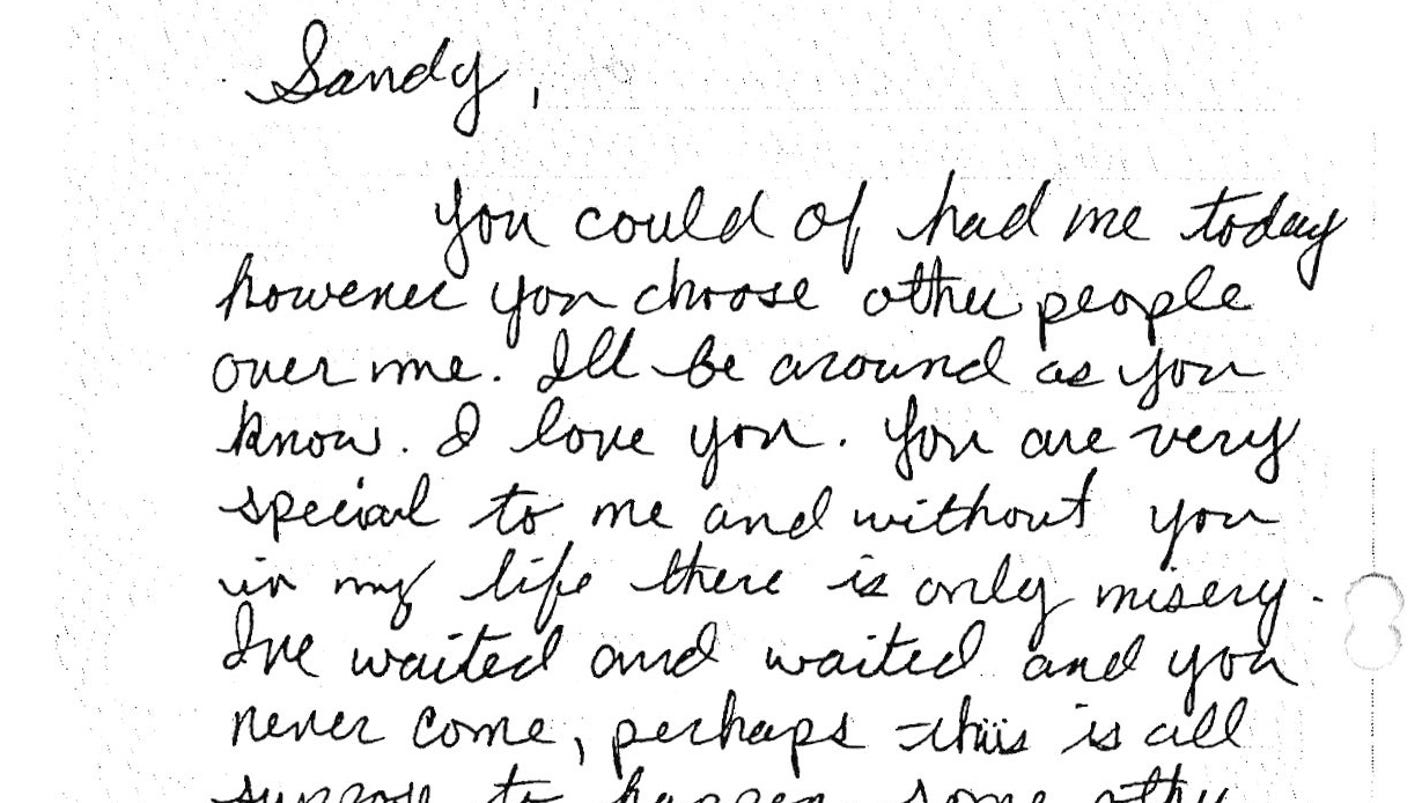 Sandy,
you could of had me today
however you choose other people
over me. Ill be around as you
know. I love you. You are very
special to me and without you
in my life there is only misery.
Ive waited and waited and you
never come, perhaps this is all
to happen some